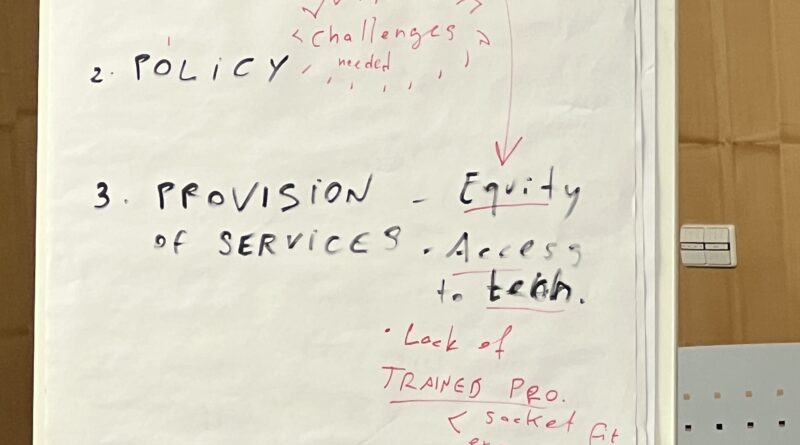 challenges
needed
2. POLiCY
3. PROVISiON - Equity
of SERViCES . Access
to tech.
· Lack of
TRAINED PRO.
< socket fit